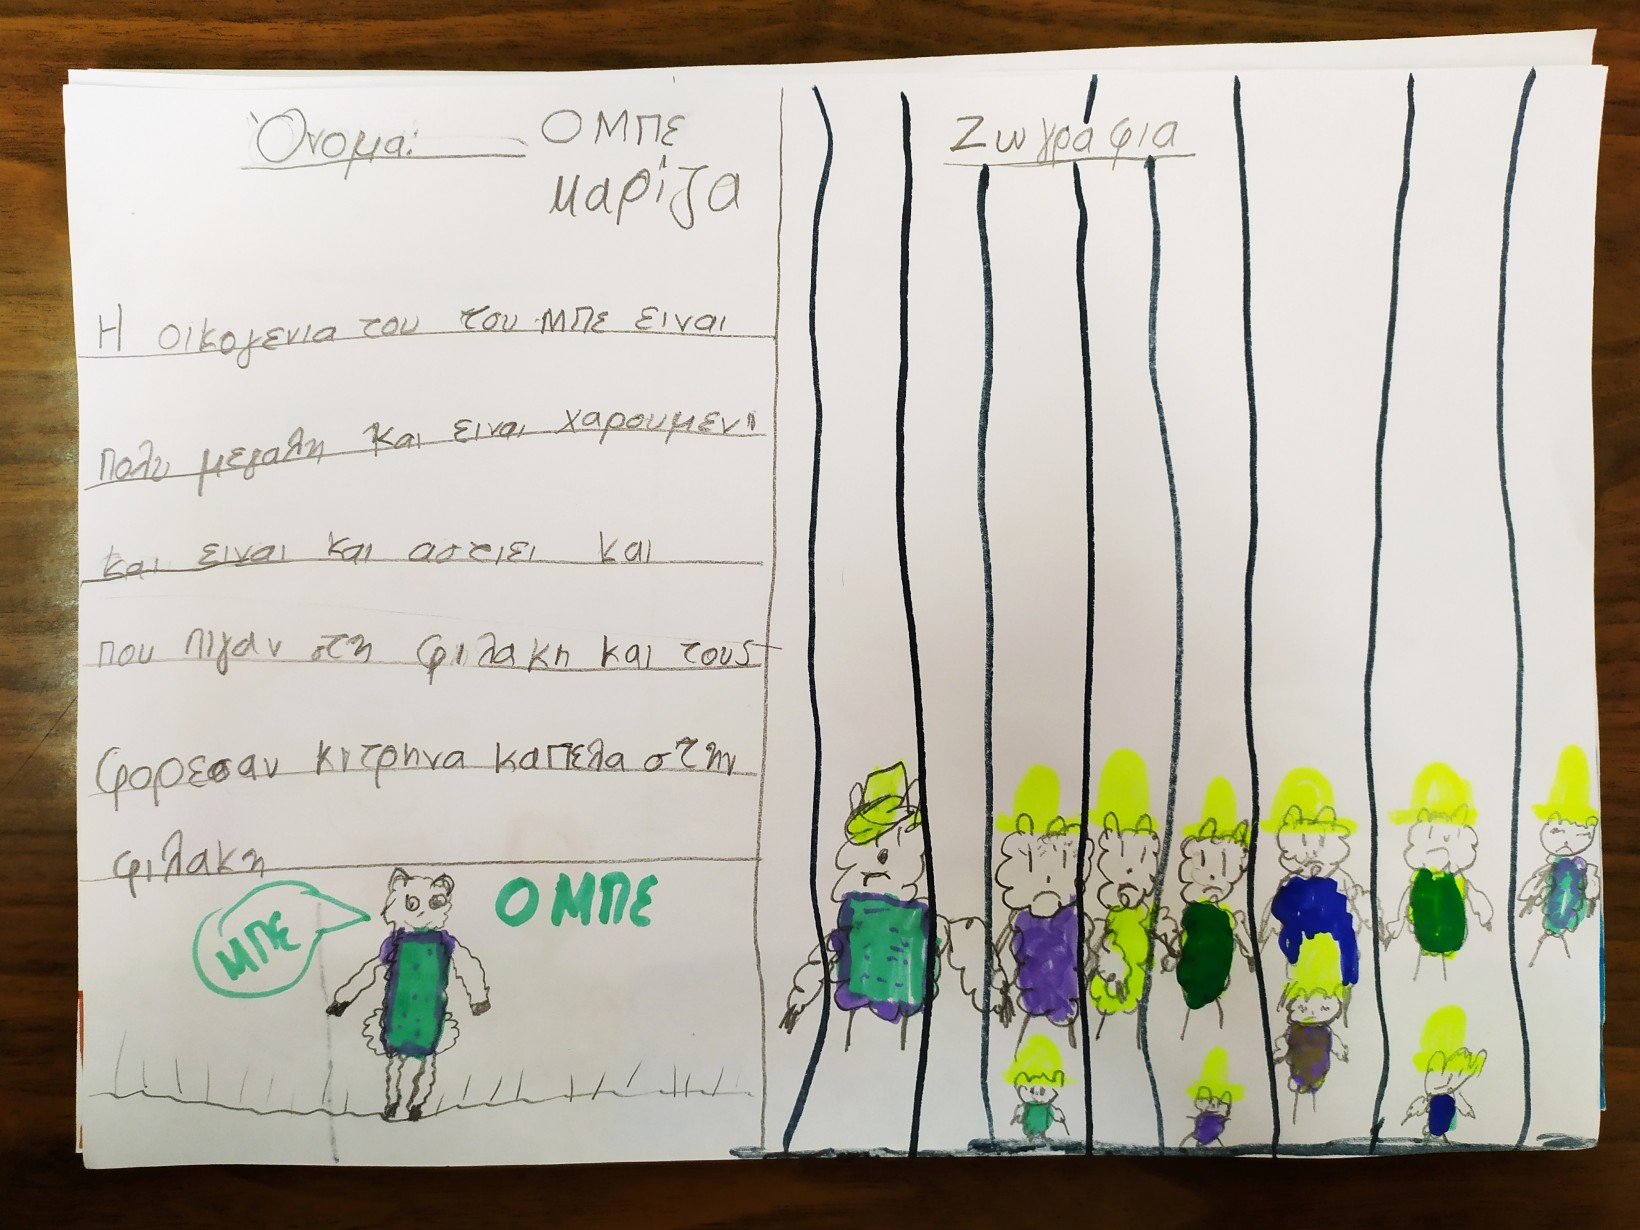 Όνομα: Ο ΜΠΕ
μαρίζα
Η οικογενια του του ΜΠε ειναι
πολυ μεγαλη και ειναι χαρουμενη
και ειναι και αστιει και
που πιγαν στη φιλακη και τους
φορεσαν κιτρηνα καπελα στην
φιλακη
ΜΠΕ
Ο ΜΠΕ
Ζωγραφια